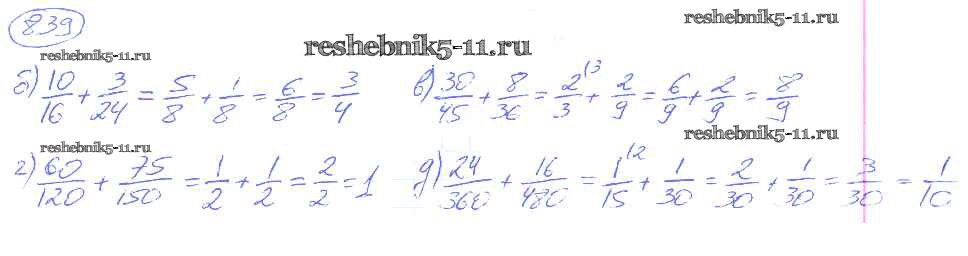 839
reshebnik5-11.ru
reshebnik5-11.ru
reshebnik5-11.ru
б) 10/16 + 3/24 = 5/8 + 1/8 = 6/8 = 3/4
в) 30/45 + 8/36 = 2/3 (3 + 2/9 = 6/9 + 2/9 = 8/9
reshebnik5-11.ru
reshebnik5-11.ru
г) 60/120 + 75/150 = 1/2 + 1/2 = 2/2 = 1
д) 24/360 + 16/480 = 1/15 (2 + 1/30 = 2/30 + 1/30 = 3/30 = 1/10